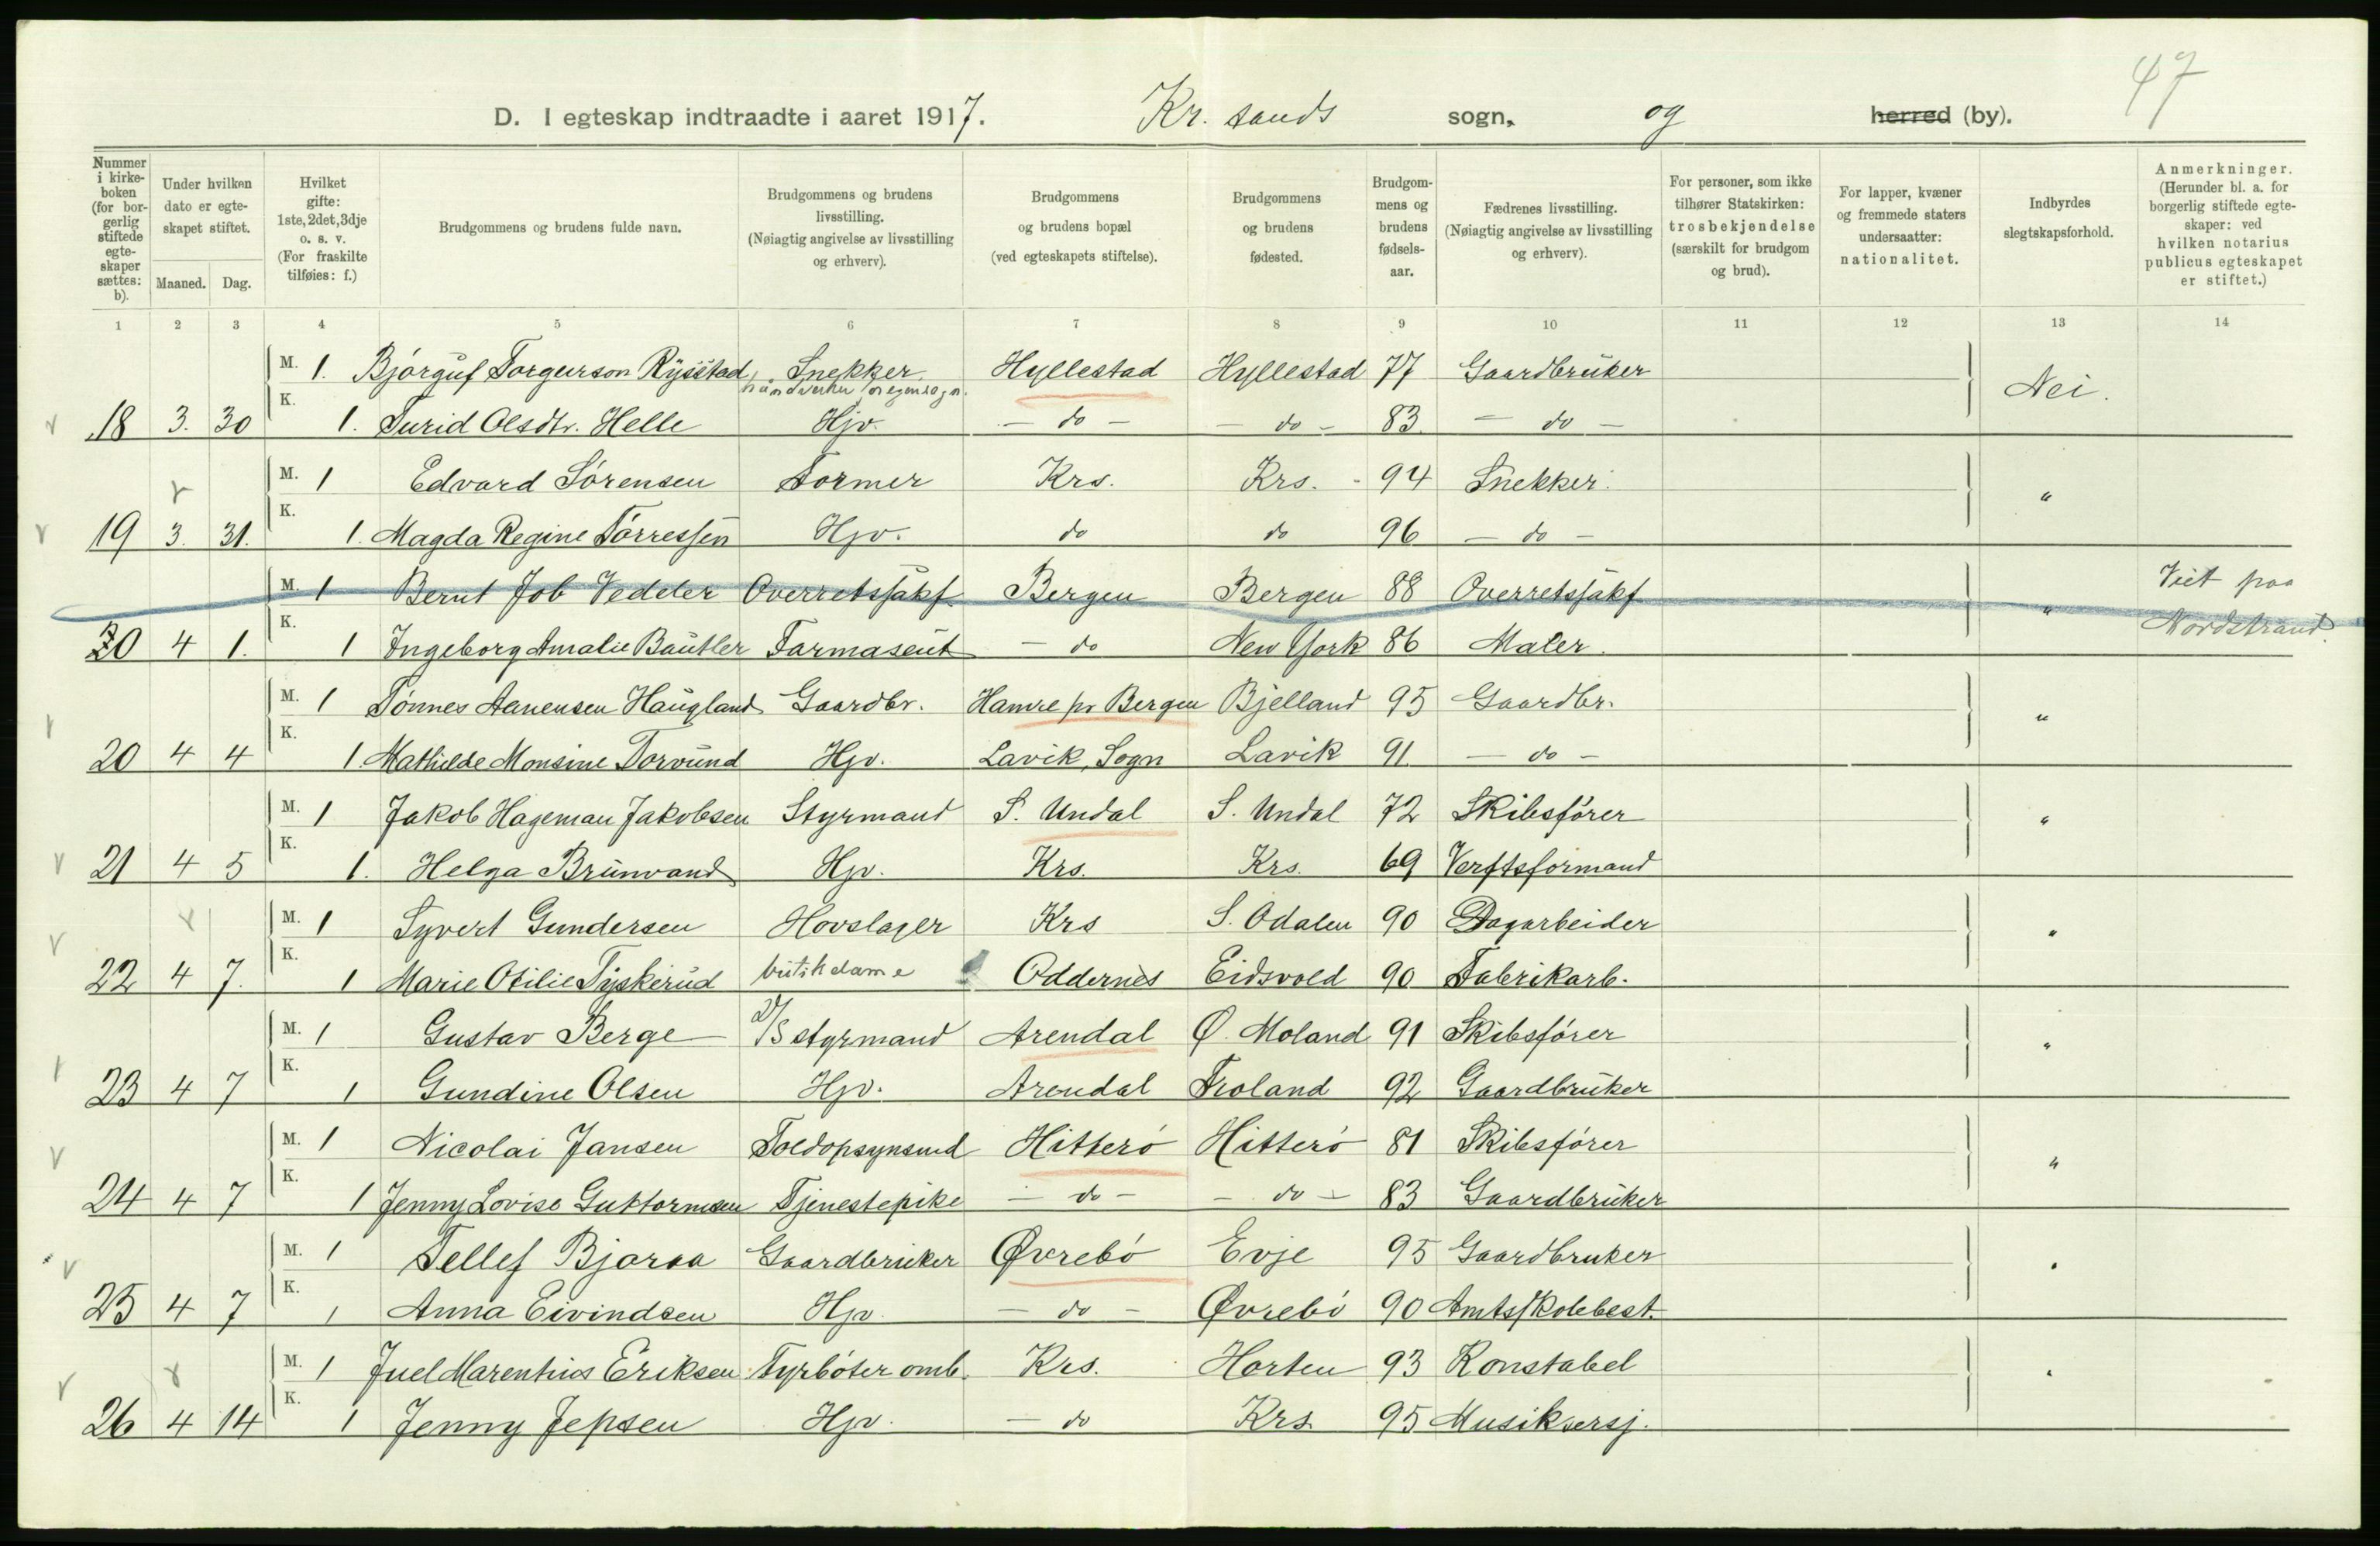 47
D. I egteskap indtraadte i aaret 1917. Kr.sands sogn, og herred (by).
Nummer i kirkeboken (for borgerlig stiftede egteskaper sættes: b).
Under hvilken dato er egteskapet stiftet.
Maaned. Dag.
Hvilket gifte: 1ste, 2det, 3dje o. s. v. (For fraskilte tilføies: f.)
Brudgommens og brudens fulde navn.
Brudgommens og brudens livsstilling. (Nøiagtig angivelse av livsstilling og erhverv).
Brudgommens og brudens bopæl (ved egteskapets stiftelse).
Brudgommens og brudens fødested.
Brudgommens og brudens fødselsaar.
Fædrenes livsstilling. (Nøiagtig angivelse av livsstilling og erhverv).
For personer, som ikke tilhører Statskirken: trosbekjendelse (særskilt for brudgom og brud).
For lapper, kvæner og fremmede staters undersaatter: nationalitet.
Indbyrdes slegtskapsforhold.
Anmerkninger. (Herunder bl. a. for borgerlig stiftede egteskaper: ved hvilken notarius publicus egteskapet er stiftet.)
1 2 3 4 5 6 7 8 9 10 11 12 13 14
M. 1. Bjórguf Torgeirson Rysstad Snekker Hyllestad Hyllestad 77 Gaardbruker Nei.
18 3. 30 K. 1. Turid Olsdtr. Helle Hjv. - do - - do - 83 - do -
M. 1 Edvard Sórensen Former Krs. Krs. 94 Snekker "
19 3. 31. K. 1. Magda Regine Tórressen Hjv. do do 96 - do -
M. 1 Bernt Job Vedeler Overretssakf. Bergen Bergen 88 Overretssakf " Viet paa Nordstrand.
20 4 1. K. 1 Ingeborg Amalie Bautler Farmaseut - do New York 86 Maler.
M. 1 Tónnes Aanensen Haugland Gaardbr. Hamre pr Bergen Bjelland 95 Gaardbr. "
20 4 4 K. 1. Mathilde Monsine Torvund Hjv. Lavik, Sogn Lavik 91 - do -
M. 1 Jakob Hageman Jakobsen Styrmand S. Undal S. Undal 72 Skibsfórer "
21 4 5 K. 1. Helga Brunvand Hjv. Krs. Krs. 69 Verftsformand
M. 1 Syvert Gundersen Hovslager Krs S. Odalen 90 Dagarbeider "
22 4 7. K. 1 Marie Otilie Tyskerud butikdame Oddernes Eidsvold 90 Fabrikarb.
M. 1 Gustav Berge D/S styrmand Arendal Ø. Moland 91 Skibsfórer "
23 4 7 K. 1 Gundine Olsen Hjv. Arendal Froland 92 Gaardbruker
M. 1 Nicolai Jansen Toldopsynsmd Hitteró Hitteró 81 Skibsfórer "
24 4 7 K. 1 Jenny Lovise Guttormsen Tjenestepike - do - - do - 83 Gaardbruker
M. 1 Tellef Bjoraa Gaardbruker Øvrebó Evje 95 Gaardbruker "
25 4 7 K. 1 Anna Eivindsen Hjv. - do - Øvrebó 90 Amtsskolebest.
M. 1 Juel Marentius Eriksen Fyrbóter omb. Krs. Horten 93 Konstabel "
26 4 14 K. 1 Jenny Jepsen Hjv. - do Krs. 95 Musiksersj.